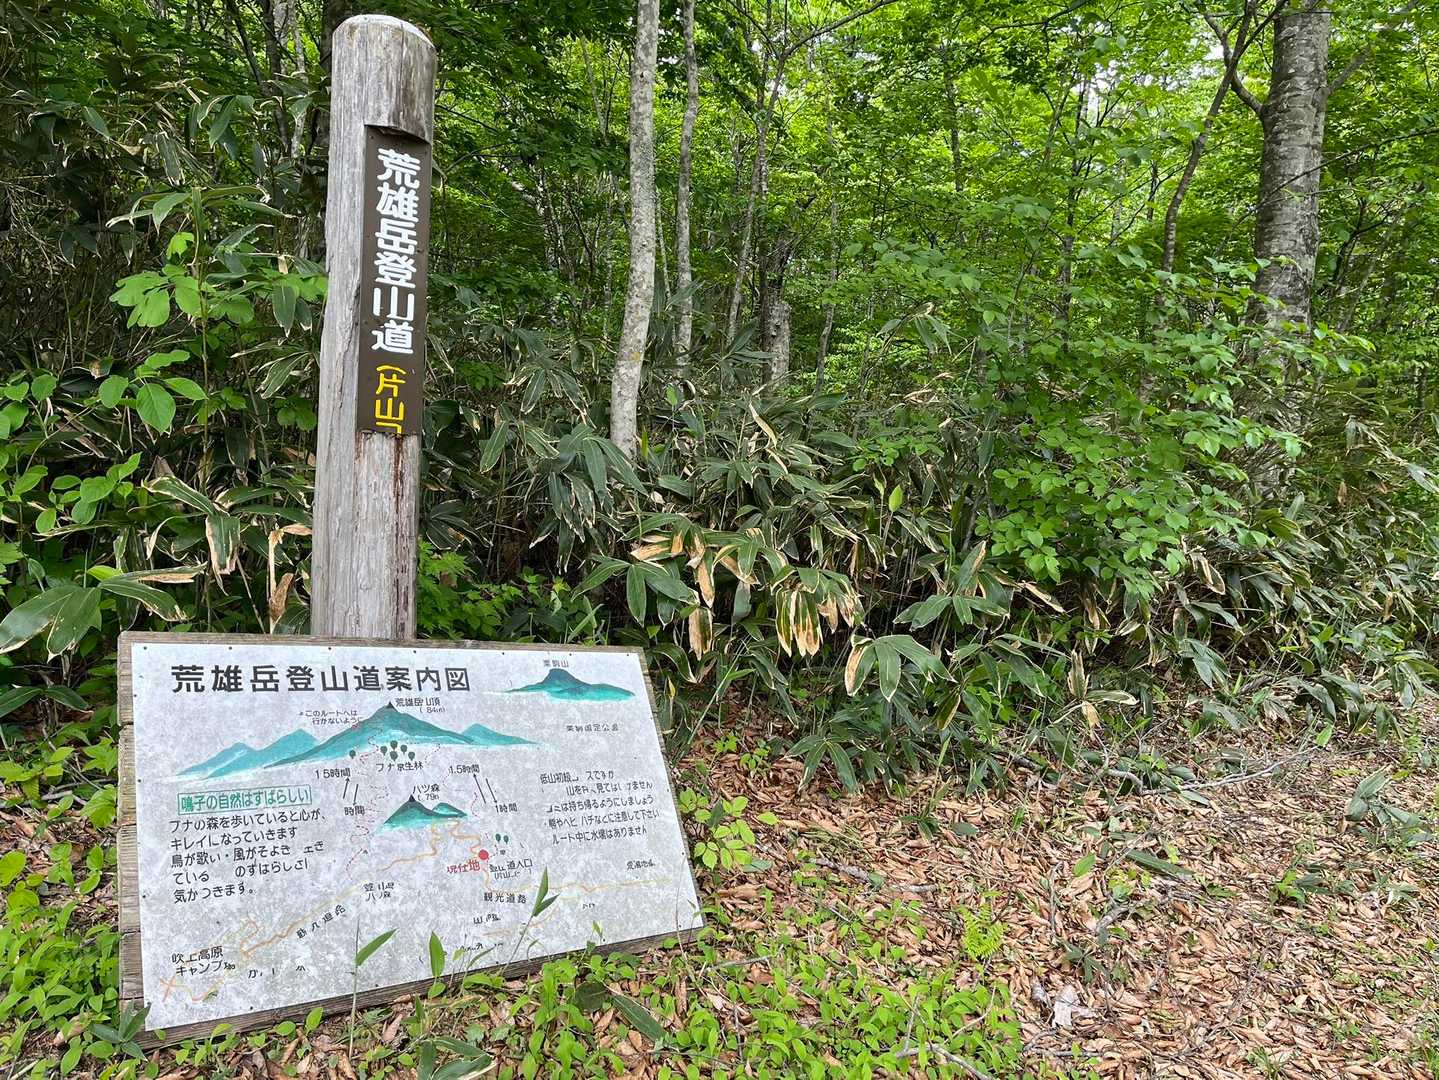 荒雄岳登山道
(片山コ
荒雄岳登山道案内図
栗駒山
荒雄岳山頂
このルートへは
行かないように
栗駒国定公園
ブナ原生林
1.5時間
1.5時間
八ツ森
時間
1時間
鳴子の自然はすばらしい
ブナの森を歩いていると心が、
キレイになっていきます
鳥が歌い・風がそよき
ている のすばらしさ
気かつきます。
低山初級 スですが
山を 見ては ません
ゴミは持ち帰るようにしましょう
熊やヘビ ハチなどに注意して下さい
ルート中に水場はありません
現在地
登山道入口
観光道路
吹上高原
キャンプ場